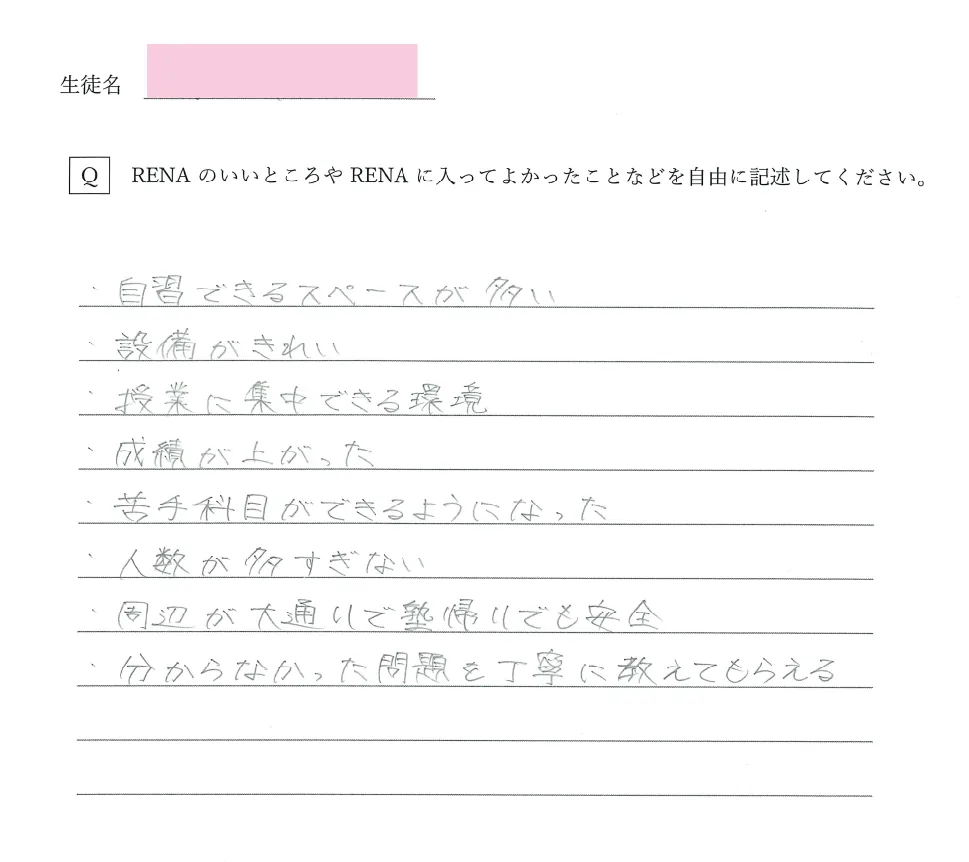 生徒名
Q RENA のいいところや RENA に入ってよかったことなどを自由に記述してください。
・自習できるスペースが多い
・設備がきれい
・授業に集中できる環境
・成績が上がった
・苦手科目ができるようになった
・人数が多すぎない
・周辺が大通りで塾帰りでも安全
・分からなかった問題を丁寧に教えてもらえる